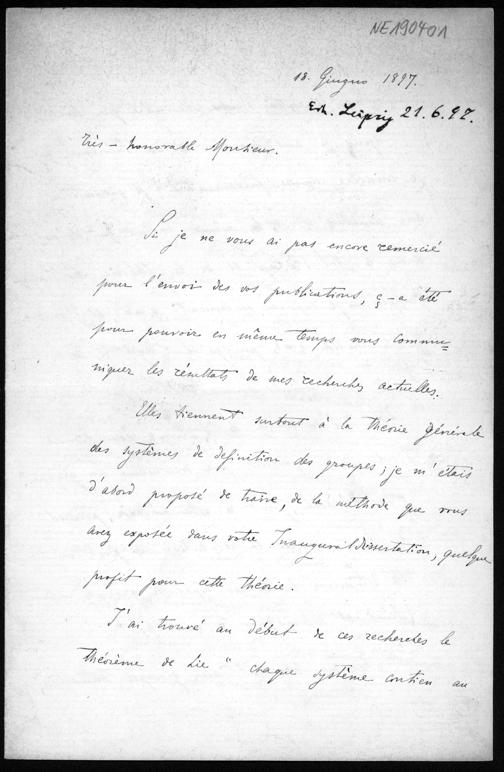 NE190401
18. Giugno 1897.
Erh. Leipzig 21.6.97.
Très-honorable Monsieur.
Si je ne vous ai pas encore remercié
pour l'envoi des vos publications, ç-a été
pour pouvoir en même temps vous commu=
niquer les résultats de mes recherches actuelles.
Elles tiennent surtout à la théorie générale
des systèmes de définition des groupes; je m'étais
d'abord proposé de traire, de la méthode que vous
avez exposée dans votre Inauguraldissertation, quelque
profit pour cette théorie.
J'ai trouvé au début de ces recherches le
théorème de Lie "chaque système contien au